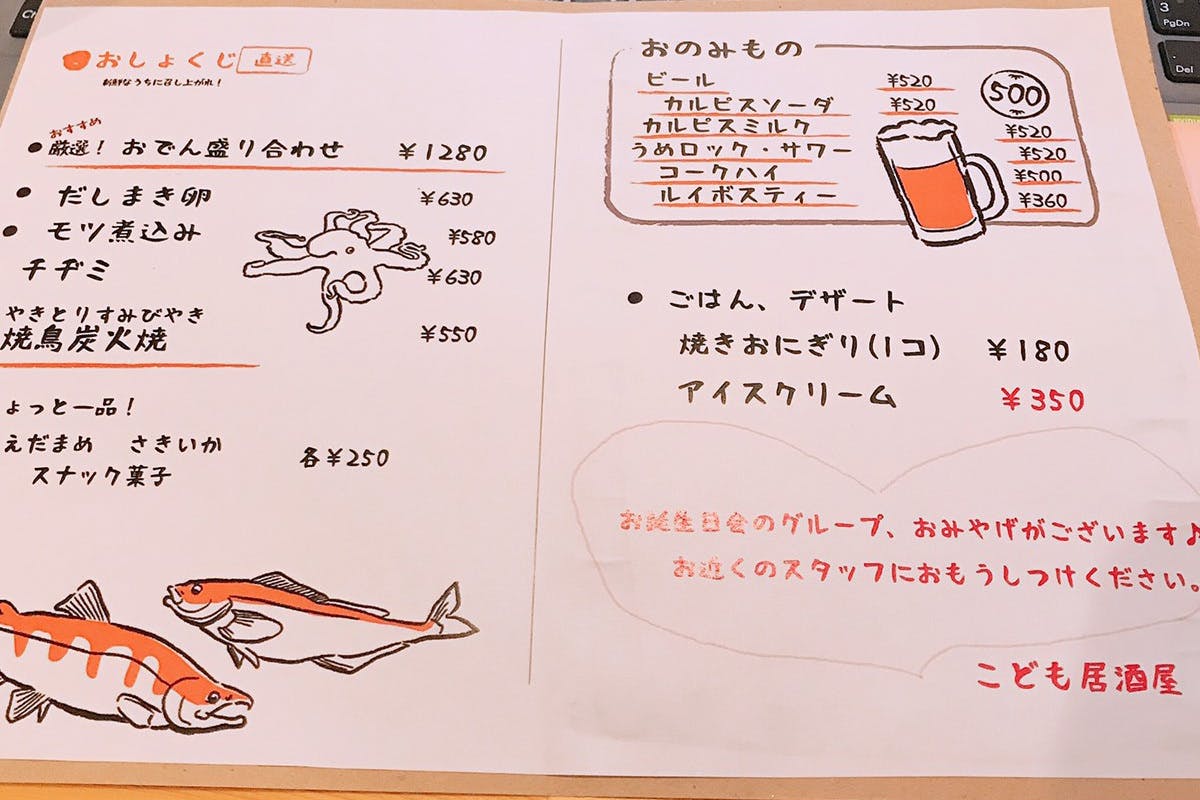 おしょくじ 直送
新鮮なうちに召し上がれ!
おすすめ
●厳選!おでん盛り合わせ ¥1280
● だしまき卵 ¥630
● モツ煮込み ¥580
チヂミ ¥630
やきとりすみびやき
焼鳥炭火焼 ¥550
ょっと一品!
えだまめ さきいか
スナック菓子 各¥250
おのみもの
ビール ¥520
カルピスソーダ ¥520
500
カルピスミルク ¥520
うめロック・サワー ¥520
コークハイ ¥500
ルイボスティー ¥360
● ごはん、デザート
焼きおにぎり(1コ) ¥180
アイスクリーム ¥350
お誕生日会のグループ、おみやげがございます♪
お近くのスタッフにおもうしつけください。
こども居酒屋
3
PgDn
Del